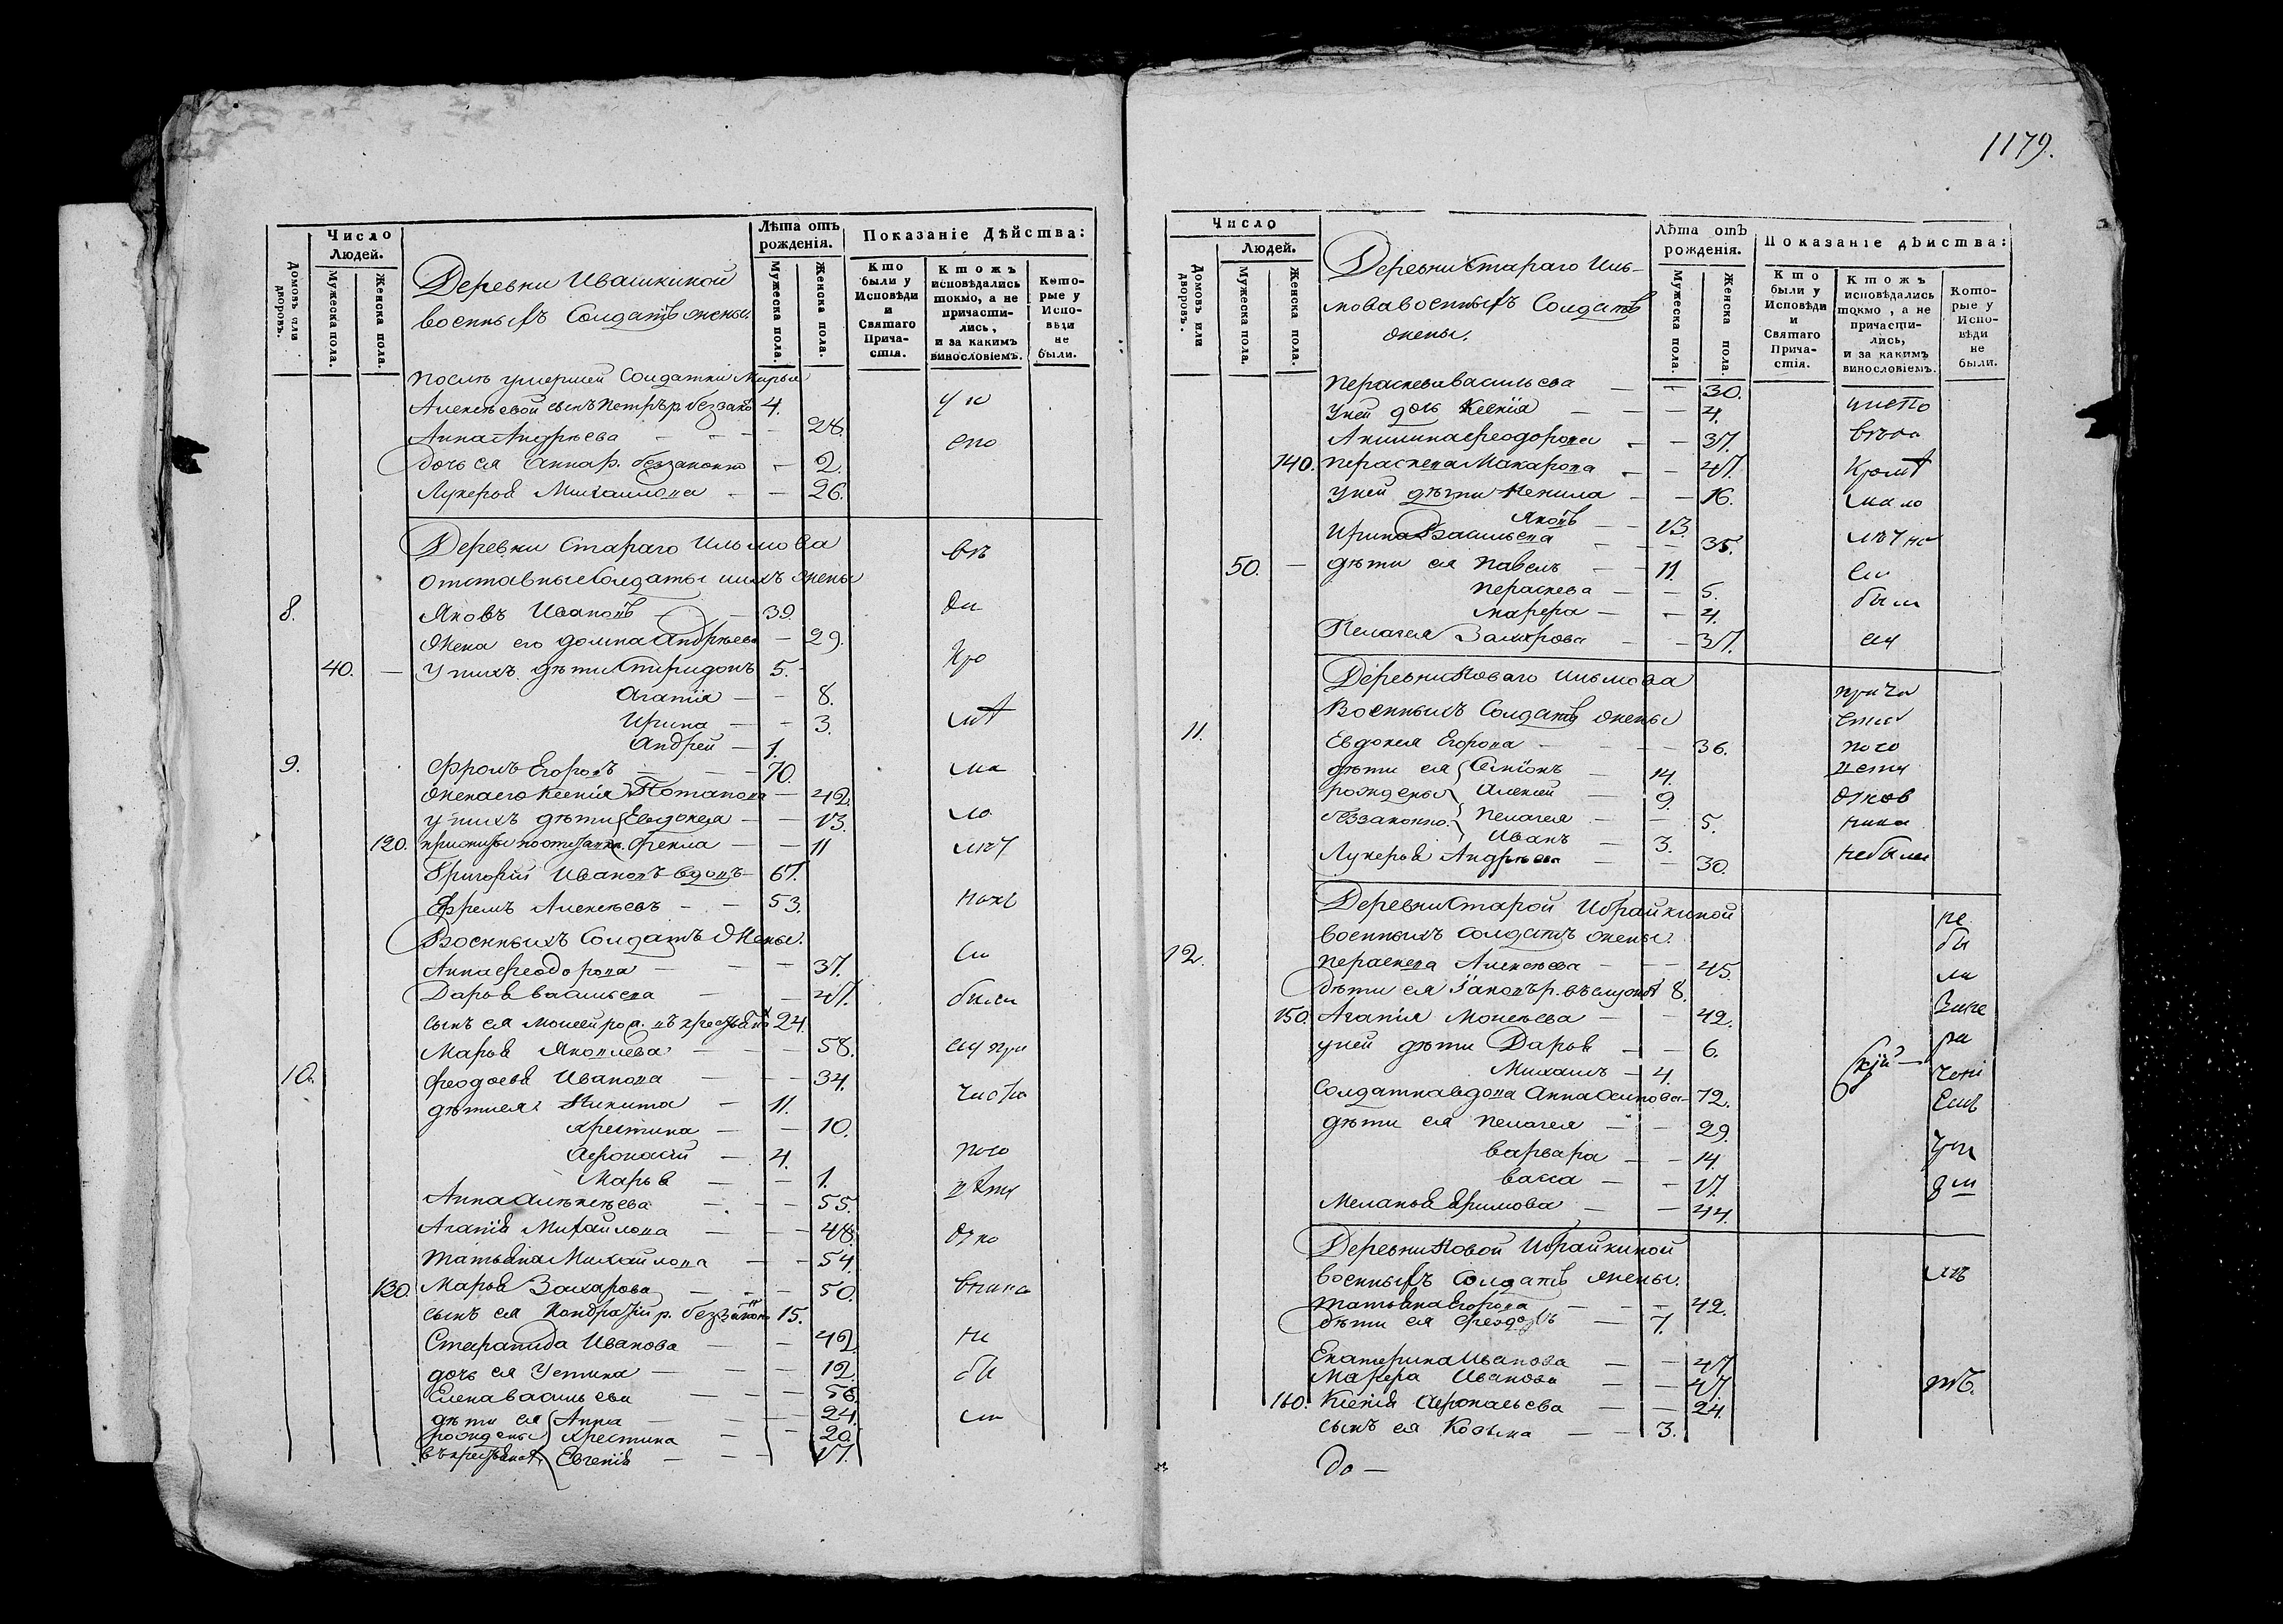 1179.
Число
Людей.
Домовъ или дворовъ.
Мужеска пола.
Женска пола.
Деревни Ивашкиной
военныхъ Солдатъ жены.
Лѣта отъ рожденія.
Мужеска пола.
Женска пола.
Показаніе Дѣйства:
Кто были у Исповѣди и Святаго Причастія.
Ктожъ исповѣдались токмо, а не причастились, и за какимъ винословіемъ.
Которые у Исповѣди не были.
послѣ умершей Солдатки Марьи
Алексѣевой сынъ Петръ р. беззако 4.
Анна Андрѣева — 28.
Дочь ея Анна р. беззаконно — 2.
Лукерья Михаилова — 26.
Деревни Стараго Ильмова
Отставные Солдаты ихъ жены
8. Яковъ Ивановъ — 39.
Жена его Домна Андрѣева — 29.
40. — У нихъ дѣти Спиридонъ 5.
Агапія — 8.
Ирина — 3.
Андрей — 1.
9. Фролъ Егоровъ — 70.
Жена его Ксенія Потапова — 42.
у нихъ дѣти Евдокея — 13.
120. Фекла — 11
Григорій Ивановъ вдовъ — 67.
Ефремъ Алексѣевъ — 53.
Военныхъ Солдатъ Жены.
Анна Феодорова — 37.
Дарья Васильева — 47.
сынъ ея Моисей 24.
Марья Яковлева — 58.
10. Феодосья Иванова — 34.
дѣти ея Никита — 11.
Хрестина — 10.
Афонасій — 4.
Марья — 1.
Анна Алѣксѣева — 55.
Агапія Михайлова — 48.
Татьяна Михайлова — 54.
130. Марья Захарова — 50.
сынъ ея Кондратій р. беззаконн 15.
Степанида Иванова — 42.
дочь ея Устина — 12.
Елена Васильева — 56.
дѣти ея Анна — 24.
рождены Хрестина — 20.
Евгенія — 17.
ли
были
чиста
ни
Число
Людей.
Домовъ или дворовъ.
Мужеска пола.
Женска пола.
Деревни Стараго Иль-
мова военныхъ Солдатъ
жены.
Лѣта отъ рожденія.
Мужеска пола.
Женска пола.
Показаніе дѣйства:
Кто были у Исповѣди и Святаго Причастія.
Ктожъ исповѣдались токмо, а не причастились, и за какимъ винословіемъ.
Которые у Исповѣди не были.
Пераскева Васильева — 30.
у ней дочь Ксенія — 4.
Акилина Феодорова — 37.
140. Пераскева Макарова — 47.
у ней дѣти Ненила — 16.
Яковъ — 13.
Ирина Васильева — 35.
50. — дѣти ея Павелъ — 11.
Пераскева — 5.
Марфа — 4.
Пелагея Захарова — 37.
Деревни Новаго Ильмова
Военныхъ Солдатъ жены
11. Евдокея Егорова — 36.
дѣти ея Семіонъ — 14.
рождены Алексей — 9.
беззаконно. Пелагея — 5.
Иванъ — 3.
Лукерья Андрѣева — 30.
Деревни Старой Ибрайкиной
военныхъ солдатъ жены.
12. Пераскева Алексѣева — 45.
дѣти ея 8.
150. Агапія Моисѣева — 42.
у ней дѣти Дарья — 6.
Михаилъ — 4.
Солдатка вдова Анна — 72.
дѣти ея Пелагея — 29.
Варвара — 14.
Васса — 17.
Меланья — 44.
Деревни Новой Ибрайкиной
военныхъ Солдатъ жены.
Татьяна Егорова — 42.
дѣти ея Феодоръ — 7.
Екатерина Иванова — 47.
Марфа Иванова — 47.
160. Ксенія Афонасьева — 24.
сынъ ея Козьма — 3.
мало
были
прича
небыли
не
бы
ли
До —